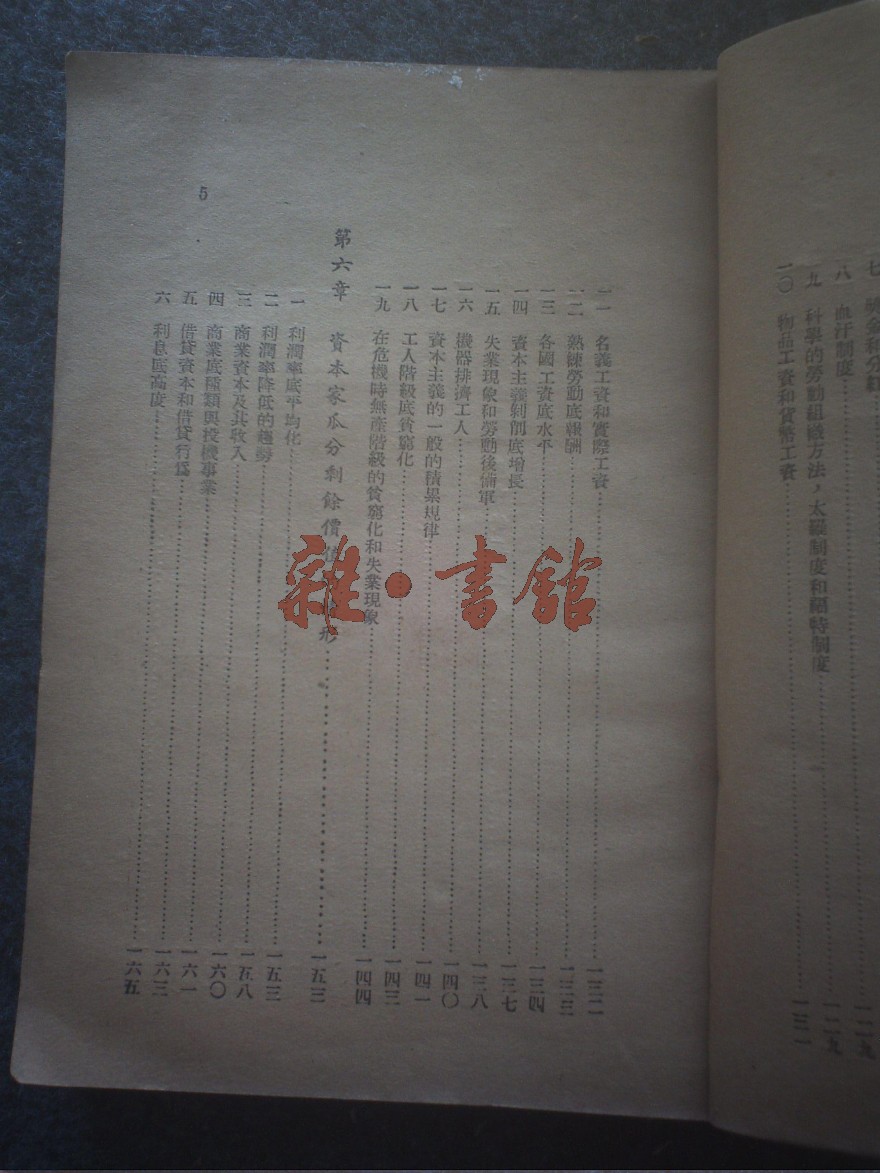 八 血汗制度 一二九
九 科學的勞動組織方法，太羅制度和福特制度 一二九
一〇 物品工資和貨幣工資 一三一
一一 名義工資和實際工資 一三二
一二 熟練勞動底報酬 一三三
一三 各國工資底水平 一三四
一四 資本主義剝削底增長 一三七
一五 失業現象和勞動後備軍 一三八
一六 機器排擠工人 一四〇
一七 資本主義的一般的積累規律 一四一
一八 工人階級底貧窮化 一四三
一九 在危機時無產階級的貧窮化和失業現象 一四四
第六章 資本家瓜分剩餘價值 形 一五三
一 利潤率底平均化
二 利潤率降低的趨勢 一五三
三 商業資本及其收入 一五八
四 商業底種類與投機事業 一六〇
五 借貸資本和借貸行爲 一六一
六 利息底高度 一六三
一六五
5
雜·書館